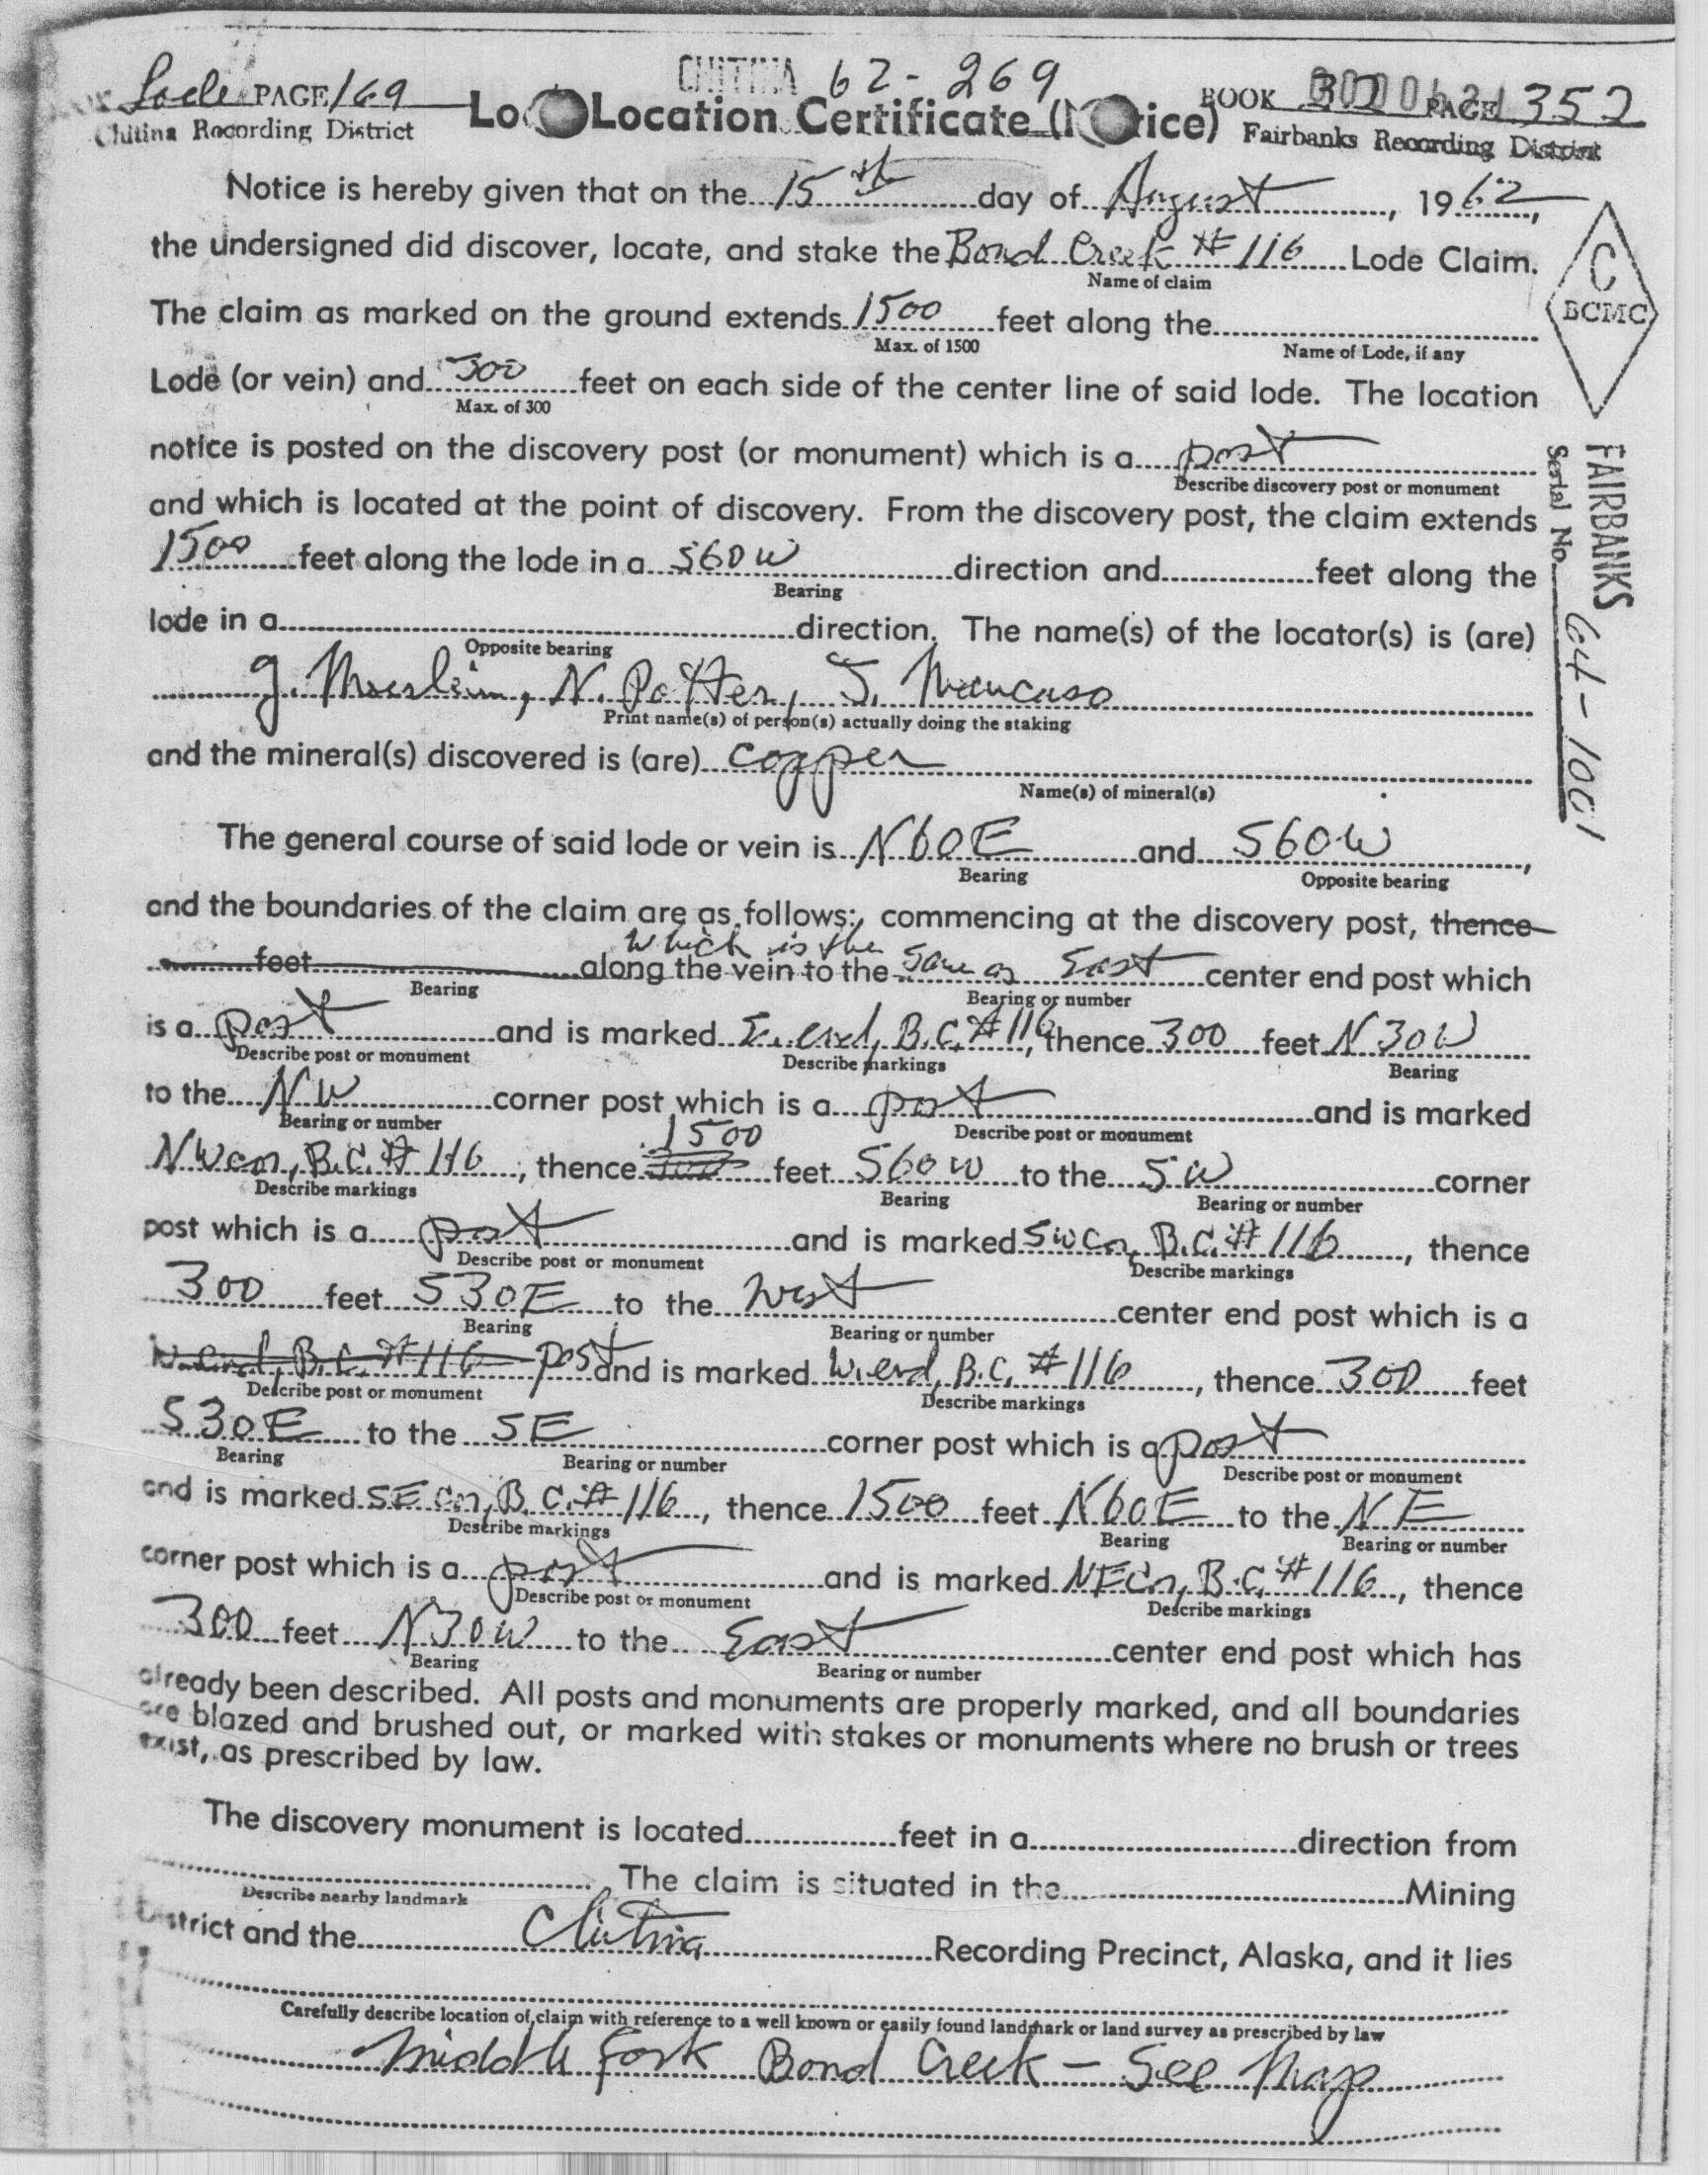 Lode PAGE 169
Chitina Recording District
CHITINA 62-269
Lo Location Certificate (N ice)
BOOK 32 PAGE 352
Fairbanks Recording District
Notice is hereby given that on the 15th day of August, 1962,
the undersigned did discover, locate, and stake the Bond Creek #116 Lode Claim.
Name of claim
The claim as marked on the ground extends 1500 feet along the
Max. of 1500 Name of Lode, if any
Lode (or vein) and 300 feet on each side of the center line of said lode. The location
Max. of 300
notice is posted on the discovery post (or monument) which is a post
Describe discovery post or monument
and which is located at the point of discovery. From the discovery post, the claim extends
1500 feet along the lode in a S60W direction and feet along the
Bearing
lode in a direction. The name(s) of the locator(s) is (are)
Opposite bearing
J. Moerlein, N. Potter, J. Mancuso
Print name(s) of person(s) actually doing the staking
and the mineral(s) discovered is (are) copper
Name(s) of mineral(s)
The general course of said lode or vein is N60E and S60W,
Bearing Opposite bearing
and the boundaries of the claim are as follows: commencing at the discovery post, thence
which is the
feet along the vein to the same as East center end post which
Bearing Bearing or number
is a post and is marked E. end, B.C. #116, thence 300 feet N30W
Describe post or monument Describe markings Bearing
to the NW corner post which is a post and is marked
Bearing or number Describe post or monument
1500
NW cn, B.C. #116, thence 300 feet S60W to the SW corner
Describe markings Bearing Bearing or number
post which is a post and is marked SW cn, B.C. #116, thence
Describe post or monument Describe markings
300 feet S30E to the West center end post which is a
Bearing Bearing or number
W. end, B.C. #116 post and is marked W. end, B.C. #116, thence 300 feet
Describe post or monument Describe markings
S30E to the SE corner post which is a post
Bearing Bearing or number Describe post or monument
and is marked SE cn, B.C. #116, thence 1500 feet N60E to the NE
Describe markings Bearing Bearing or number
corner post which is a post and is marked NE cn, B.C. #116, thence
Describe post or monument Describe markings
300 feet N30W to the East center end post which has
Bearing Bearing or number
already been described. All posts and monuments are properly marked, and all boundaries
are blazed and brushed out, or marked with stakes or monuments where no brush or trees
exist, as prescribed by law.
The discovery monument is located feet in a direction from
The claim is situated in the Mining
Describe nearby landmark
District and the Chitina Recording Precinct, Alaska, and it lies
Carefully describe location of claim with reference to a well known or easily found landmark or land survey as prescribed by law
Middle Fork Bond Creek - See Map
C
BCMC
FAIRBANKS
Serial No. 64-1001